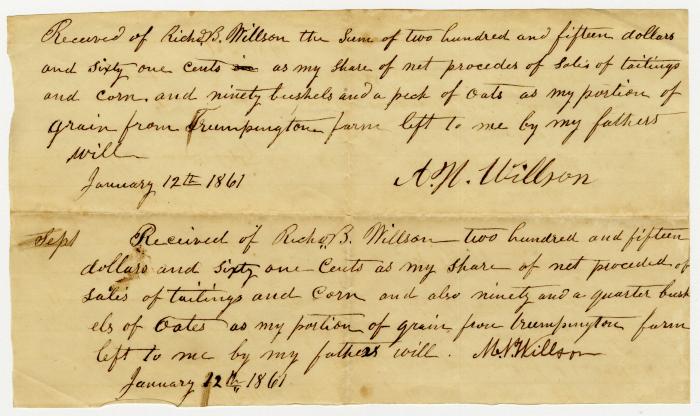 Received of Richd B. Willson the Sum of two hundred and fifteen dollars
and Sixty one Cents in as my Share of net procedes of Sales of tailings
and Corn. and ninety bushels and a peck of Oats as my portion of
grain from Trumpington farm left to me by my fathers
will
January 12th 1861 A. N. Willson
Sept Received of Richd B. Willson two hundred and fifteen
dollars and Sixty one Cents as my Share of net proceded of
Sales of tailings and Corn and also ninety and a quarter bush
els of Oates as my portion of grain from trumpington farm
left to me by my fathers will. M. N. Willson
January 12th 1861